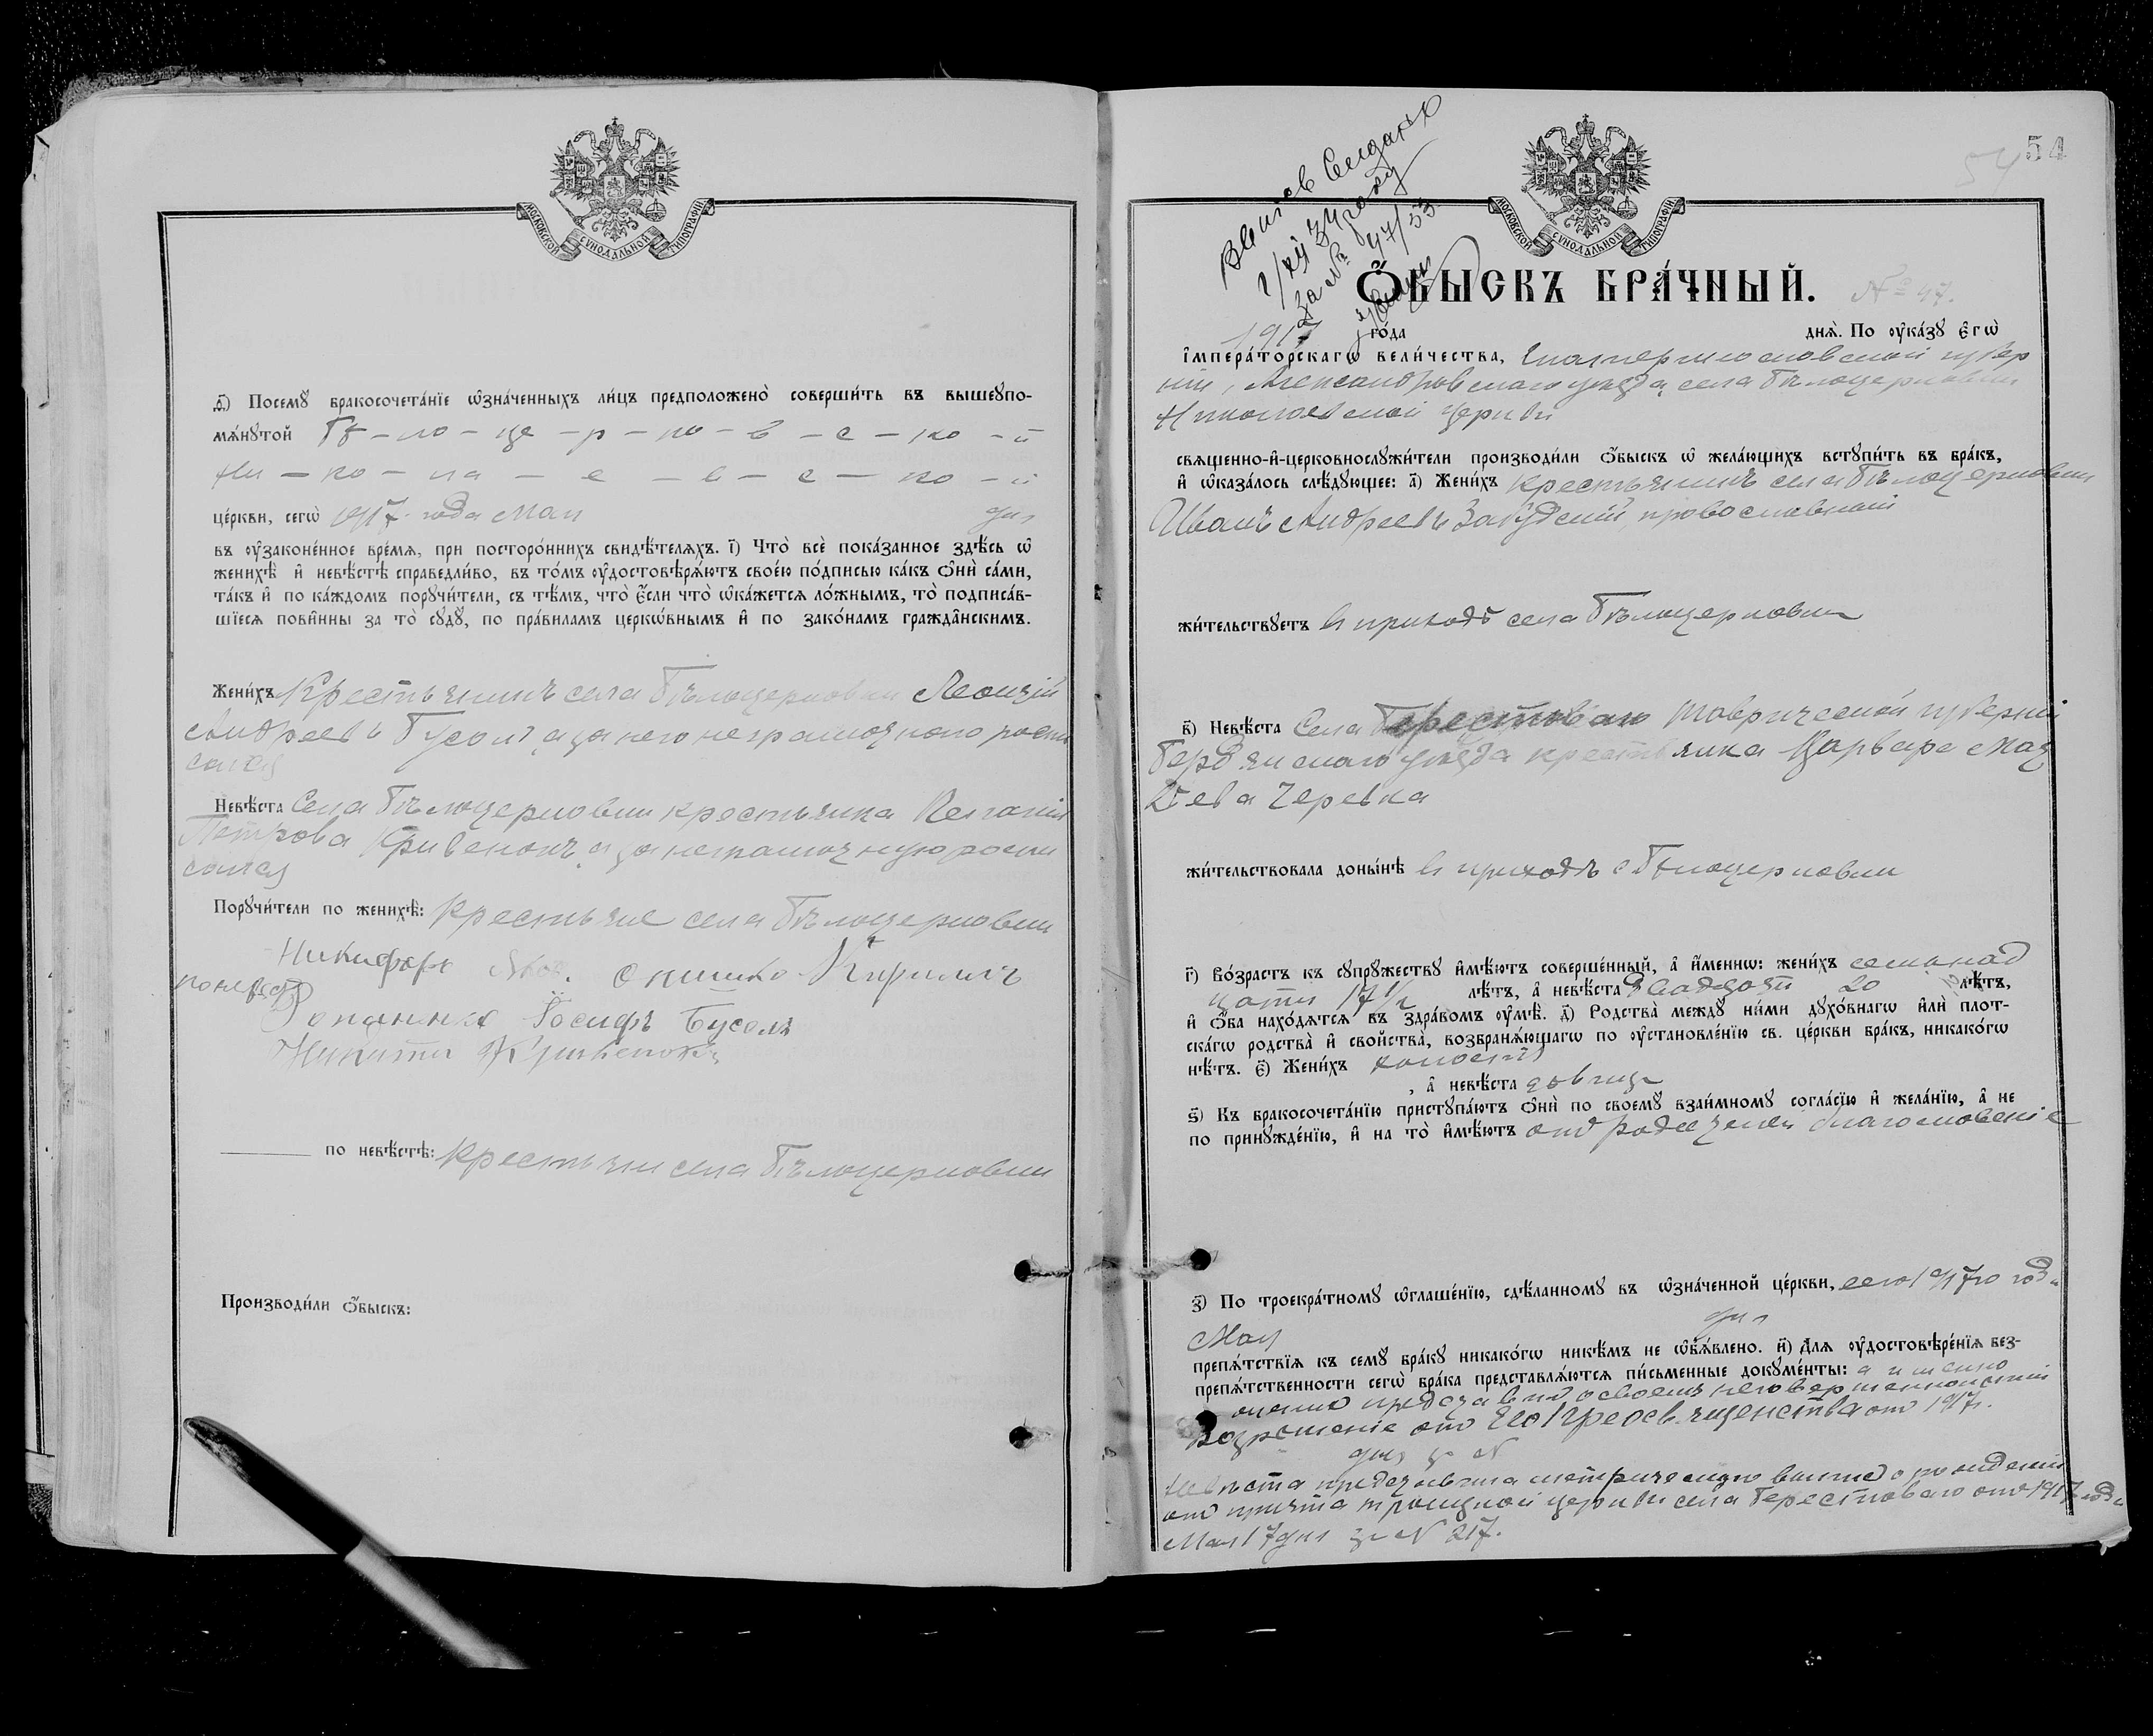 МОСКОВСКОЙ СУНОДАЛЬНОЙ ТИПОГРАФІИ
ѳ҃) Посемꙋ̀ бракосочета́нїе ѡ҆зна́ченныхъ ли́цъ предположено̀ соверши́ть въ вышеꙋпо-
мѧ́нꙋтой Бѣ – ло – це – р – ко – в – с – ко – й
Ни – ко – ла – е – в – с – ко – й
це́ркви, сегѡ̀ 1917 года Мая дня
въ ᲂу҆зако́ненное вре́мѧ, при посторо́ннихъ свидѣ́телѧхъ. і҃) Что̀ всѐ пока́занное здѣ́сь ѡ҆
женихѣ̀ и҆ невѣ́стѣ справедли́во, въ то́мъ ᲂу҆достовѣрѧ́ютъ свое́ю по́дписью ка́къ ѻ҆нѝ са́ми,
та́къ и҆ по ка́ждомъ порꙋчи́тели, съ тѣ́мъ, что̀ є҆́сли что̀ ѡ҆ка́жетсѧ ло́жнымъ, то̀ подписа́в-
шїесѧ пови́нны за то̀ сꙋдꙋ̀, по пра́виламъ церко́внымъ и҆ по зако́намъ гражда́нскимъ.
Жени́хъ Крестьянинъ села Бѣлоцерковки Леонтій
Андреевъ Бусолъ а за него неграмотнаго роспи
сался
Невѣ́ста Села Бѣлоцерковки крестьянка
Петрова Кривенокъ а за неграмотную роспи
сался
Порꙋчи́тели по женихѣ̀: Крестьяне села Бѣлоцерковки
Никифоръ Онишко Кирилъ
Іосифъ Бусолъ
Никита Кривенокъ
по невѣ́стѣ: Крестьяни села Бѣлоцерковки
Производи́ли ѻ҆́быскъ:
54
54
МОСКОВСКОЙ СУНОДАЛЬНОЙ ТИПОГРАФІИ
за № 47/53
Ѻ҆́БЫСКЪ БРА́ЧНЫЙ. № 47.
1917 го́да днѧ̀. По ᲂу҆ка́зꙋ є҆гѡ̀
і҆мпера́торскагѡ вели́чества, Екатеринославской губер
ніи, Александровскаго уѣзда села Бѣлоцерковки
Николаевской церкви
свѧще́нно-и҆-церковнослꙋжи́тели производи́ли ѻ҆́быскъ ѡ҆ жела́ющихъ встꙋпи́ть въ бра́къ,
и҆ ѡ҆каза́лось слѣ́дꙋющее: а҃) Жени́хъ крестьянинъ села Бѣлоцерковки
Иванъ Андреевъ православный
жи́тельствꙋетъ въ приходѣ села Бѣлоцерковки
в҃) Невѣ́ста Села Берестоваго Таврической губерніи
Бердянскаго уѣзда крестьянка Варвара Мат
ѣева Черевка
жи́тельствовала доны́нѣ въ приходѣ с Бѣлоцерковки
г҃) Во́зрастъ къ сꙋпрꙋ́жествꙋ и҆мѣ́ютъ соверше́нный, а҆ и҆́меннѡ: жени́хъ семьнад
цати 17½ лѣ́тъ, а҆ невѣ́ста двадцати 20 лѣ́тъ,
и҆ ѻ҆́ба нахо́дѧтсѧ въ здра́вомъ ᲂу҆мѣ̀. д҃) Родства̀ междꙋ̀ ни́ми дꙋхо́внагѡ и҆лѝ плот-
ска́гѡ родства̀ и҆ свойства̀, возбранѧ́ющагѡ по ᲂу҆становле́нїю св. це́ркви бра́къ, никако́гѡ
нѣ́тъ. є҃) Жени́хъ холостъ
, а҆ невѣ́ста дѣвица
ѕ҃) Къ бракосочета́нїю пристꙋпа́ютъ ѻ҆нѝ по своемꙋ̀ взаи́мномꙋ согла́сїю и҆ жела́нїю, а҆ не
по принꙋжде́нїю, и҆ на то̀ и҆мѣ́ютъ отъ родителей благословеніе
з҃) По троекра́тномꙋ ѡ҆глаше́нїю, сдѣ́ланномꙋ въ ѡ҆зна́ченной це́ркви, сего 1917го года
Мая дня
препѧ́тствїѧ къ семꙋ̀ бра́кꙋ никако́гѡ никѣ́мъ не ѡ҆б̾ѧ́влено. и҃) Длѧ ᲂу҆достовѣре́нїѧ без-
препѧ́тственности сегѡ̀ бра́ка представлѧ́ютсѧ пи́сьменные докꙋме́нты: а именно
о своемъ несовершеннолѣтіи
Разрешеніе отъ Его Преосвященства отъ 1917г.
дня за №
Невѣста метрическую выпись о рожденіи
отъ причта троицкой церкви села Берестоваго отъ 1917 года
Мая 17 дня за № 217.